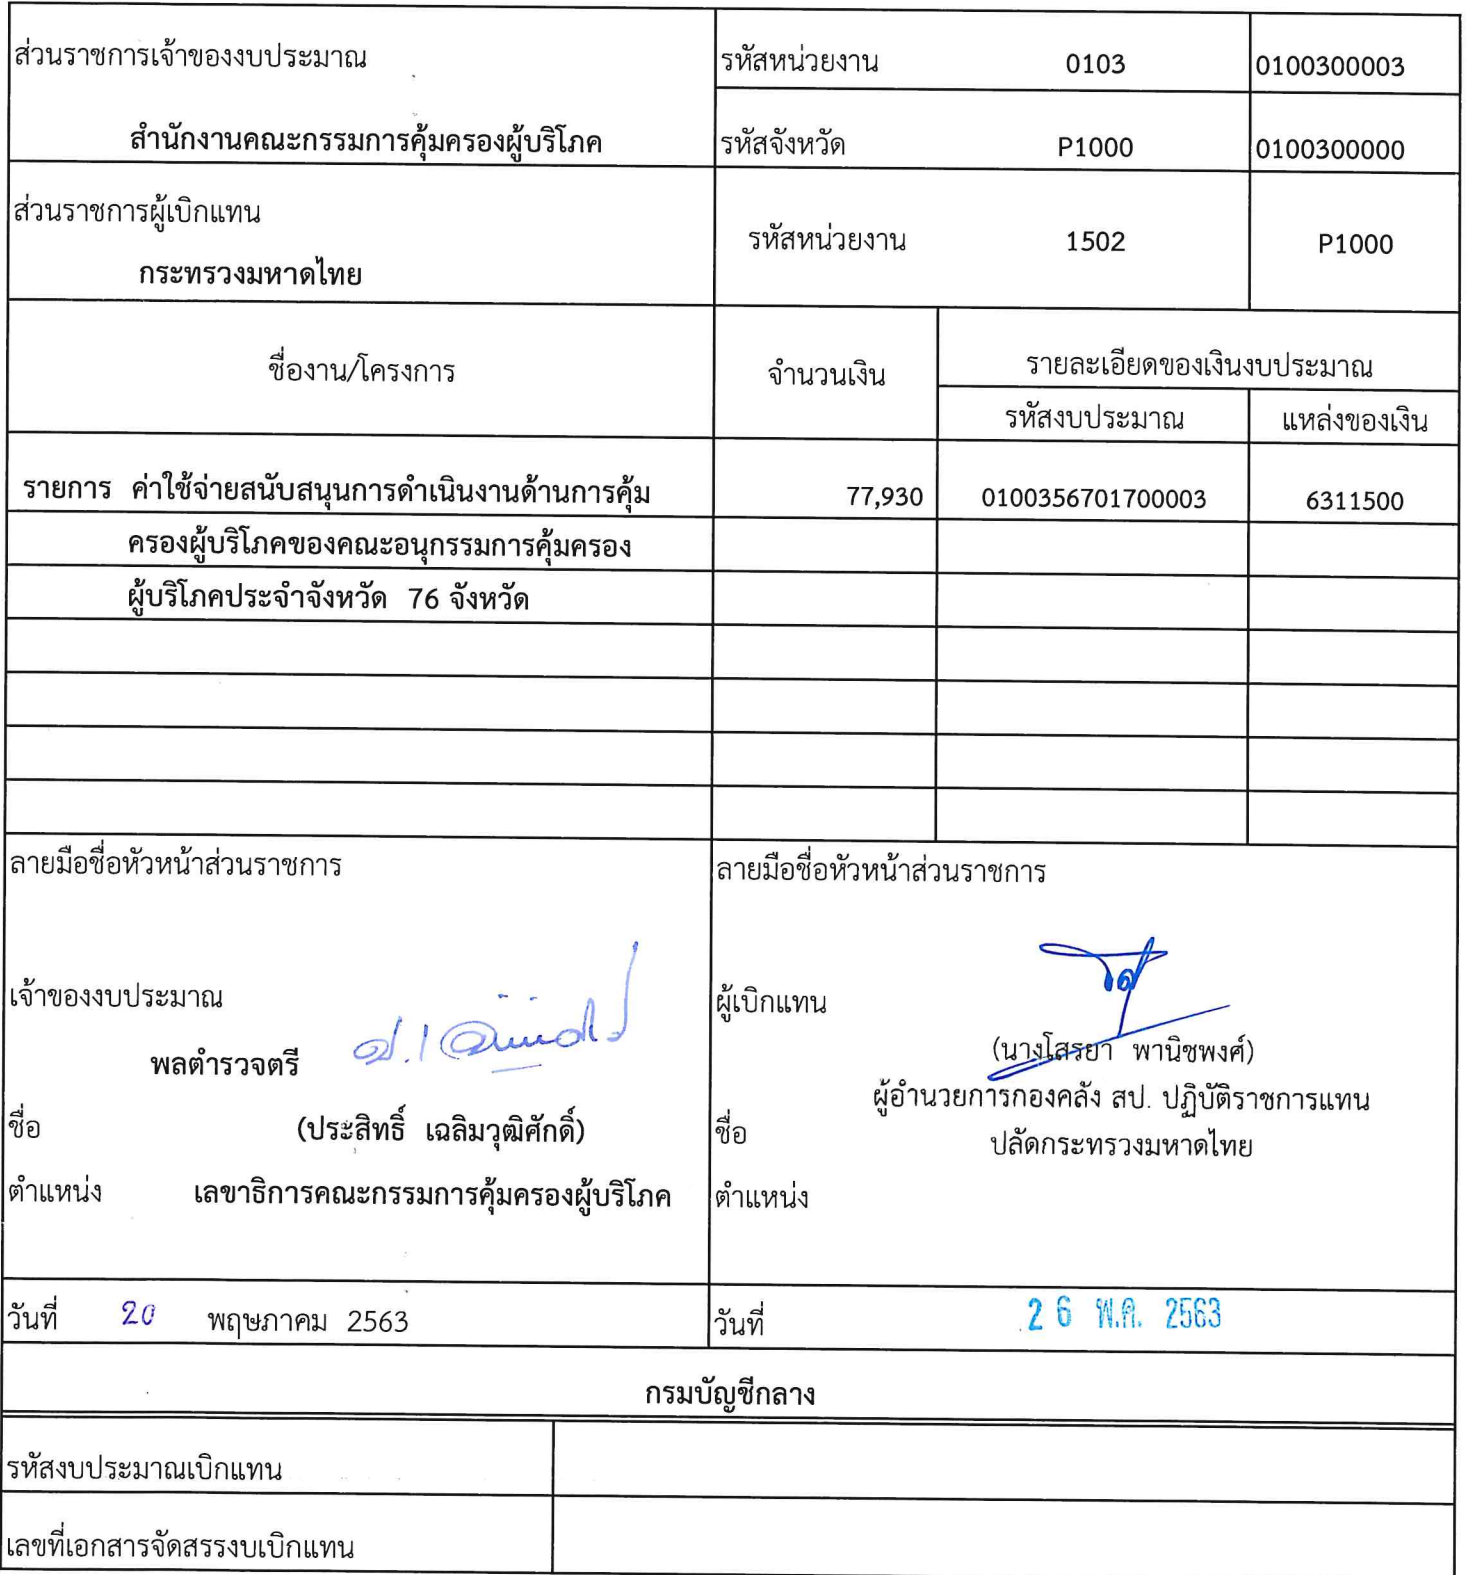 ส่วนราชการเจ้าของงบประมาณ
รหัสหน่วยงาน 0103 0100300003
สำนักงานคณะกรรมการคุ้มครองผู้บริโภค
รหัสจังหวัด P1000 0100300000
ส่วนราชการผู้เบิกแทน
รหัสหน่วยงาน 1502 P1000
กระทรวงมหาดไทย
ชื่องาน/โครงการ
จำนวนเงิน
รายละเอียดของเงินงบประมาณ
รหัสงบประมาณ แหล่งของเงิน
รายการ ค่าใช้จ่ายสนับสนุนการดำเนินงานด้านการคุ้ม 77,930 0100356701700003 6311500
ครองผู้บริโภคของคณะอนุกรรมการคุ้มครอง
ผู้บริโภคประจำจังหวัด 76 จังหวัด
ลายมือชื่อหัวหน้าส่วนราชการ
เจ้าของงบประมาณ
พลตำรวจตรี
ชื่อ (ประสิทธิ์ เฉลิมวุฒิศักดิ์)
ตำแหน่ง เลขาธิการคณะกรรมการคุ้มครองผู้บริโภค
วันที่ 20 พฤษภาคม 2563
ลายมือชื่อหัวหน้าส่วนราชการ
ผู้เบิกแทน
(นางโสรยา พานิชพงศ์)
ผู้อำนวยการกองคลัง สป. ปฏิบัติราชการแทน
ชื่อ ปลัดกระทรวงมหาดไทย
ตำแหน่ง
วันที่ 26 พ.ค. 2563
กรมบัญชีกลาง
รหัสงบประมาณเบิกแทน
เลขที่เอกสารจัดสรรงบเบิกแทน